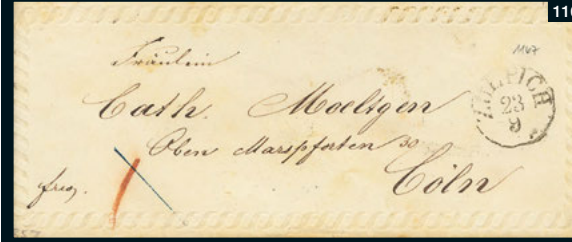 110
1147
Fräulein
Cath. Moeltgen
Oben Marspforten 30
Cöln
ZÜLPICH
23
9